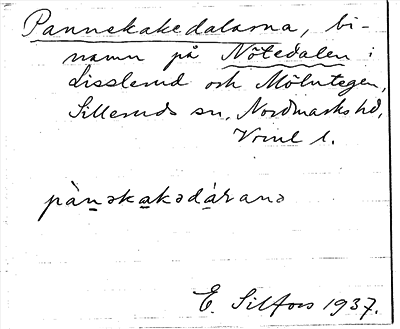 Pannekakedalarna, bi-
namn på Nötedalen i
Lisslerud och Mölntegen,
Silleruds sn, Nordmarks hd,
Vrml l.
pànəkakədárana
E. Silfors 1937.